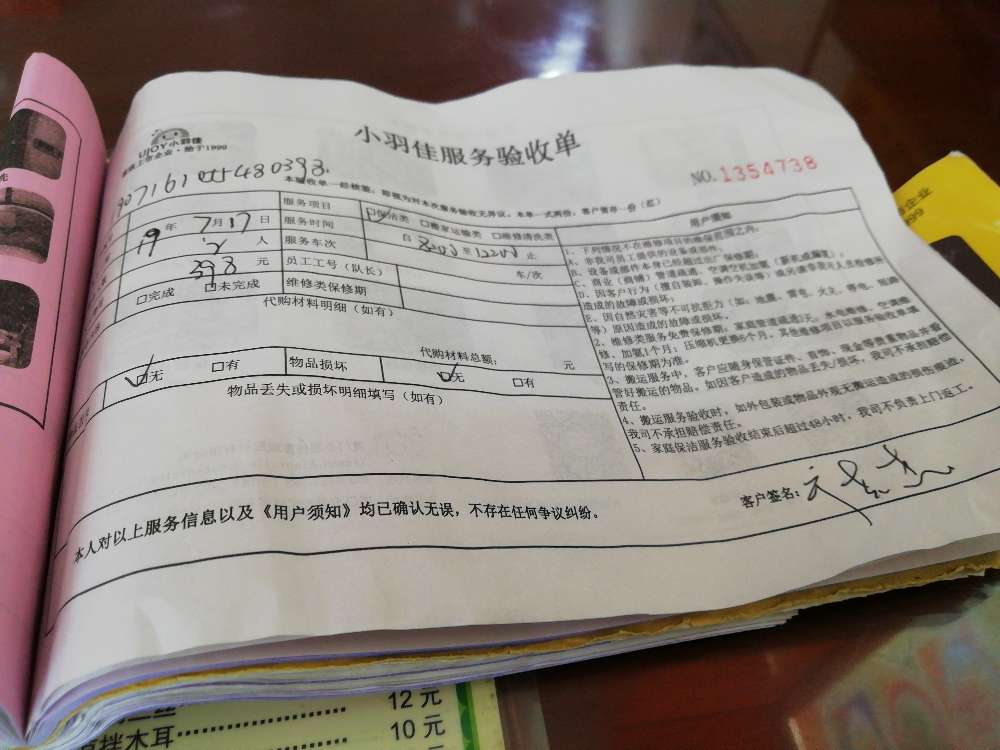 UJOY小羽佳
家政上市企业·始于1999
小羽佳服务验收单
NO.1354738
本验收单一经核签，即视为对本次服务验收无异议。本单一式两份，客户留存一份（红）
19 年 7月17日
服务项目 □保洁类 □搬家运输类 □维修清洗类
2 人 服务时间 自 8:00 至 12:00 止
398 元 服务车次 车/次
□完成 □未完成 员工工号（队长）
维修类保修期
代购材料明细（如有）
代购材料总额： 元
□无 □有 物品损坏 □无 □有
物品丢失或损坏明细填写（如有）
用户须知
1、下列情况不在维修项目的维保范围之内：
A、非我司人工提供的设备或部件。
B、设备或部件本身已经超过出厂保修期。
造成的故障或损坏；
E、因自然灾害等不可抗拒力（如：地震、雷电、火灾、等）原因造成的故障或损坏。
2、维修类服务免费保修期：
修、加氟1个月；压缩机更换6个月，其他维修项目以服务验收单填
写的保修期为准。
3、搬运服务中，客户应随身保管证件、首饰、现金等贵重物品
管好搬运的物品，如因客户造成的物品丢失/损坏，我司不承担赔偿
责任。
4、搬运服务验收时，如外包装或物品外观无搬运造成的损伤痕迹，
我司不承担赔偿责任。
5、家庭保洁服务验收结束后超过48小时，我司不负责上门返工。
本人对以上服务信息以及《用户须知》均已确认无误，不存在任何争议纠纷。
客户签名：
12 元
拌木耳 10 元
企业